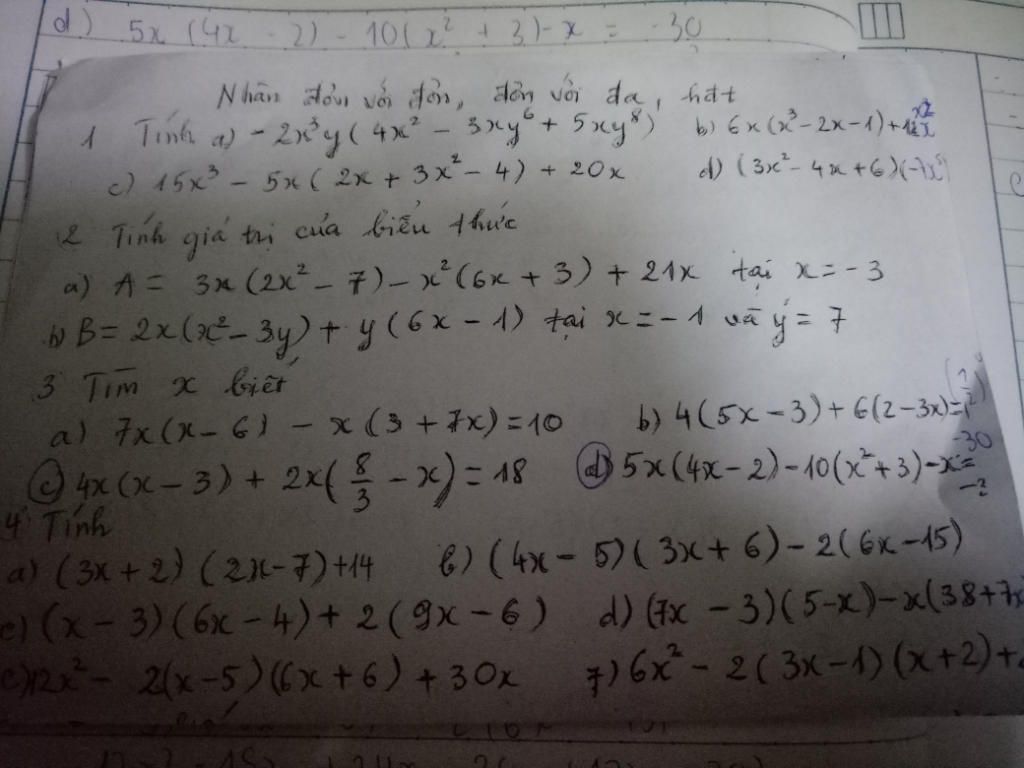 d) 5x (4x - 2) - 10(x² + 3) - x = -30
Nhân đơn với đơn, đơn với đa, hđt
1 Tính a) - 2x³y( 4x² - 3xy⁶ + 5xy⁸) b) 6x(x³ - 2x - 1) +
c) 15x³ - 5x( 2x + 3x² - 4) + 20x d) (3x² - 4x + 6)(-7x
2 Tính giá trị của biểu thức
a) A = 3x(2x² - 7) - x²(6x + 3) + 21x tại x = - 3
b) B = 2x(x² - 3y) + y(6x - 1) tại x = - 1 và y = 7
3 Tìm x biết
a) 7x(x - 6) - x(3 + 7x) = 10 b) 4(5x - 3) + 6(2 - 3x) =
c) 4x(x - 3) + 2x(8/3 - x) = 18 d) 5x(4x - 2) - 10(x² + 3) - x = -30
4 Tính
a) (3x + 2) (2x - 7) + 14 b) (4x - 5)(3x + 6) - 2(6x - 15)
c) (x - 3)(6x - 4) + 2(9x - 6) d) (7x - 3)(5 - x) - x(38 + 7x
e) 12x² - 2(x - 5)(6x + 6) + 30x 7) 6x² - 2(3x - 1)(x + 2) +